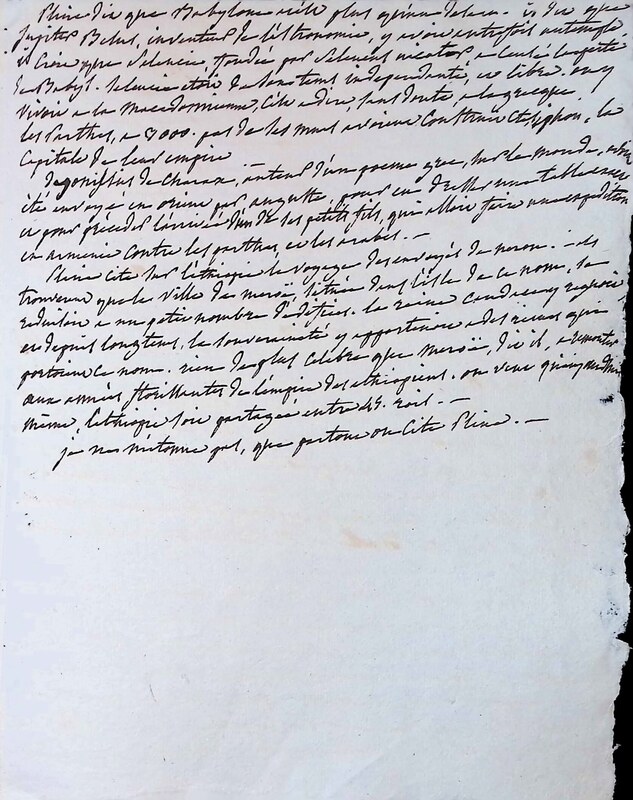 Pline dit que Babylone n'était plus qu'une place. il dit que
Jupiter Belus, inventeur de l'astronomie, y avoit autrefois un temple
il croit que Seleucie, fondée par Seleucus nicator a causé la perte
de Babyl. Seleucie étoit de son tems independante, et libre. on y
vivoit a la Macedonienne, c'est a dire, sans doute, a la grecque.
les Parthes, a 3000. pas de ses murs avoient construit Ctesiphon, la
Capitale de leur empire
de Charax, auteur d'un poeme grec, sur le monde, avoit
été envoyé en orient par auguste pour en dresser une table exacte
et pour préceder l'arrivée d'un de ses petits fils, qui alloit faire une expedition
en armenie contre les parthes, et les arabes. —
Pline cite sur l'ethiopie le voyage des envoyés de neron. — ils
trouverent que la ville de meroë, située dans l'isle de ce nom, se
reduisoit a un petit nombre d'edifices. la reine candace y regnoit
et depuis longtems, la souveraineté y appartenoit a des reines qui
portoient ce nom. rien de plus celebre que meroë, dit il, a remonter
aux années florissantes de l'empire des ethiopiens. on veut qu'aujourd'hui
même, l'ethiopie soit partagée entre 45. rois. —
je ne m'étonne pas, que partout on cite Pline. —